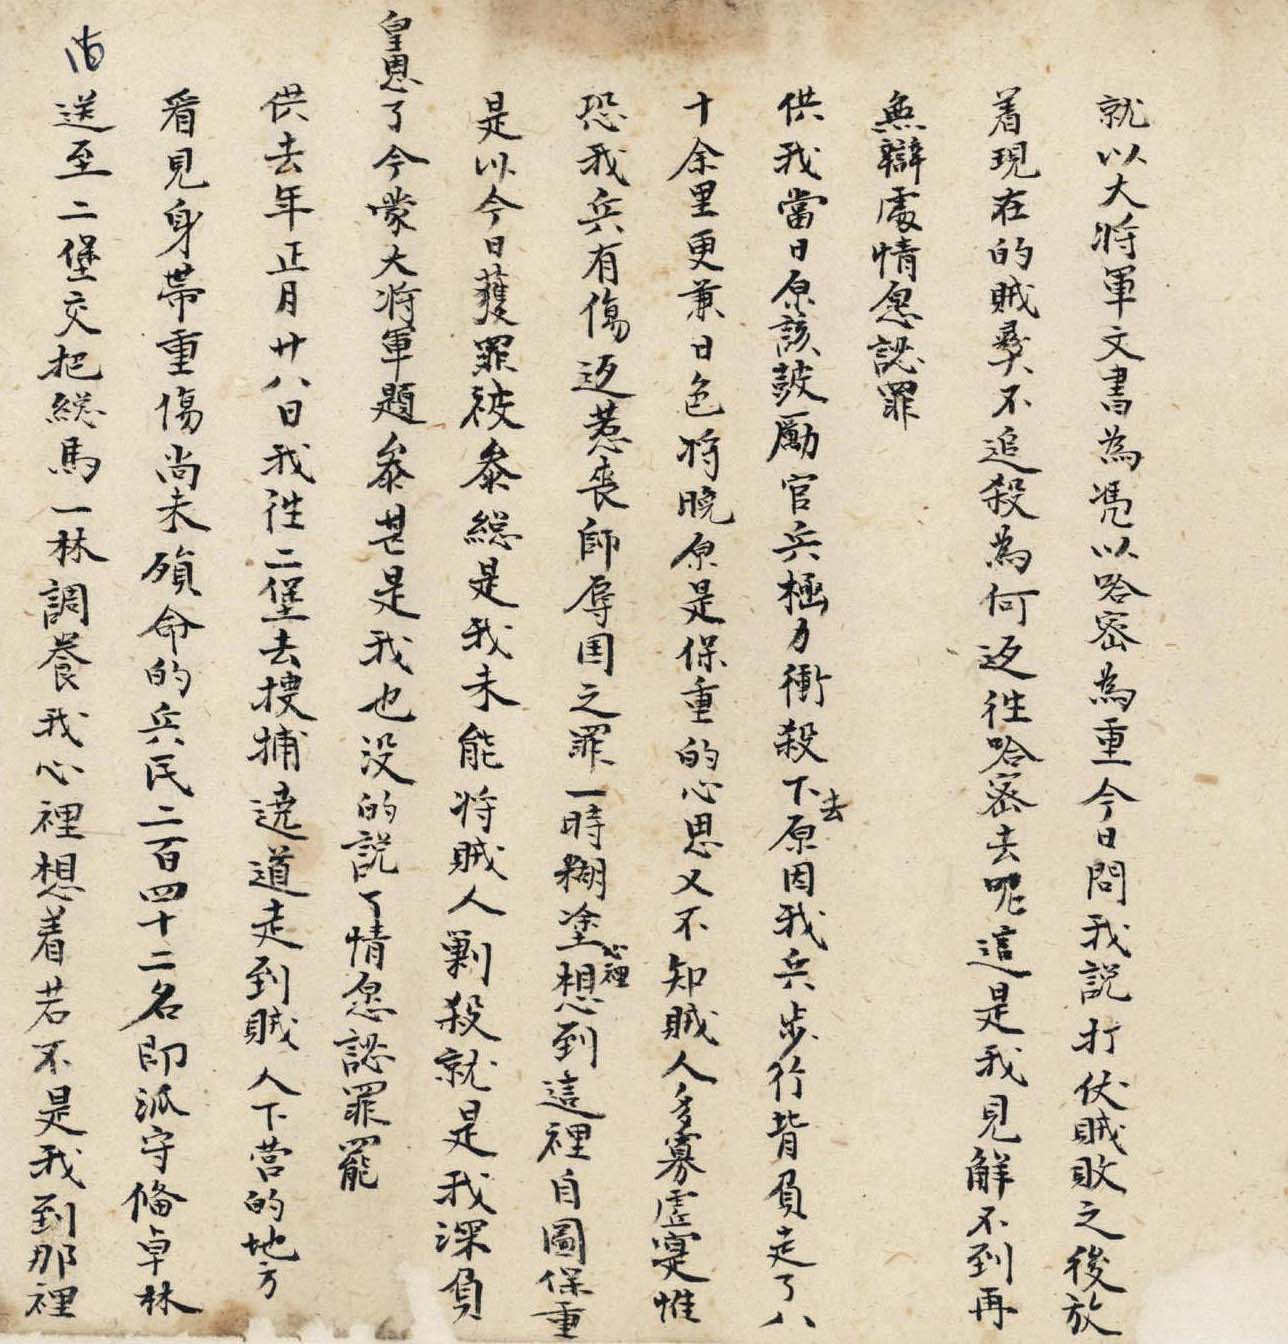 就以大将軍文書為凴以哈密為重今日問我説打伏賊敗之後放
着現在的賊彝不追殺為何返徃哈密去呢這是我見觧不到再
無辯處情愿認罪
供我當日原該鼓勵官兵極力衝殺下去原因我兵步行背負走了八
十余里更兼日色将晚原是保重的心思又不知賊人多寡虚寔惟
恐我兵有傷返惹喪師辱国之罪一時糊塗心裡想到這裡自圖保重
是以今日獲罪被叅総是我未能将賊人剿殺就是我深負
皇恩了今蒙大将軍題叅芒是我也没的説了情愿認罪罷
供去年正月廿八日我徃二堡去捜捕遶道走到賊人下营的地方
看見身帯重傷尚未殞命的兵民二百四十二名即派守俻卓林
送至二堡交把総馬一林調養我心裡想着若不是我到那裡